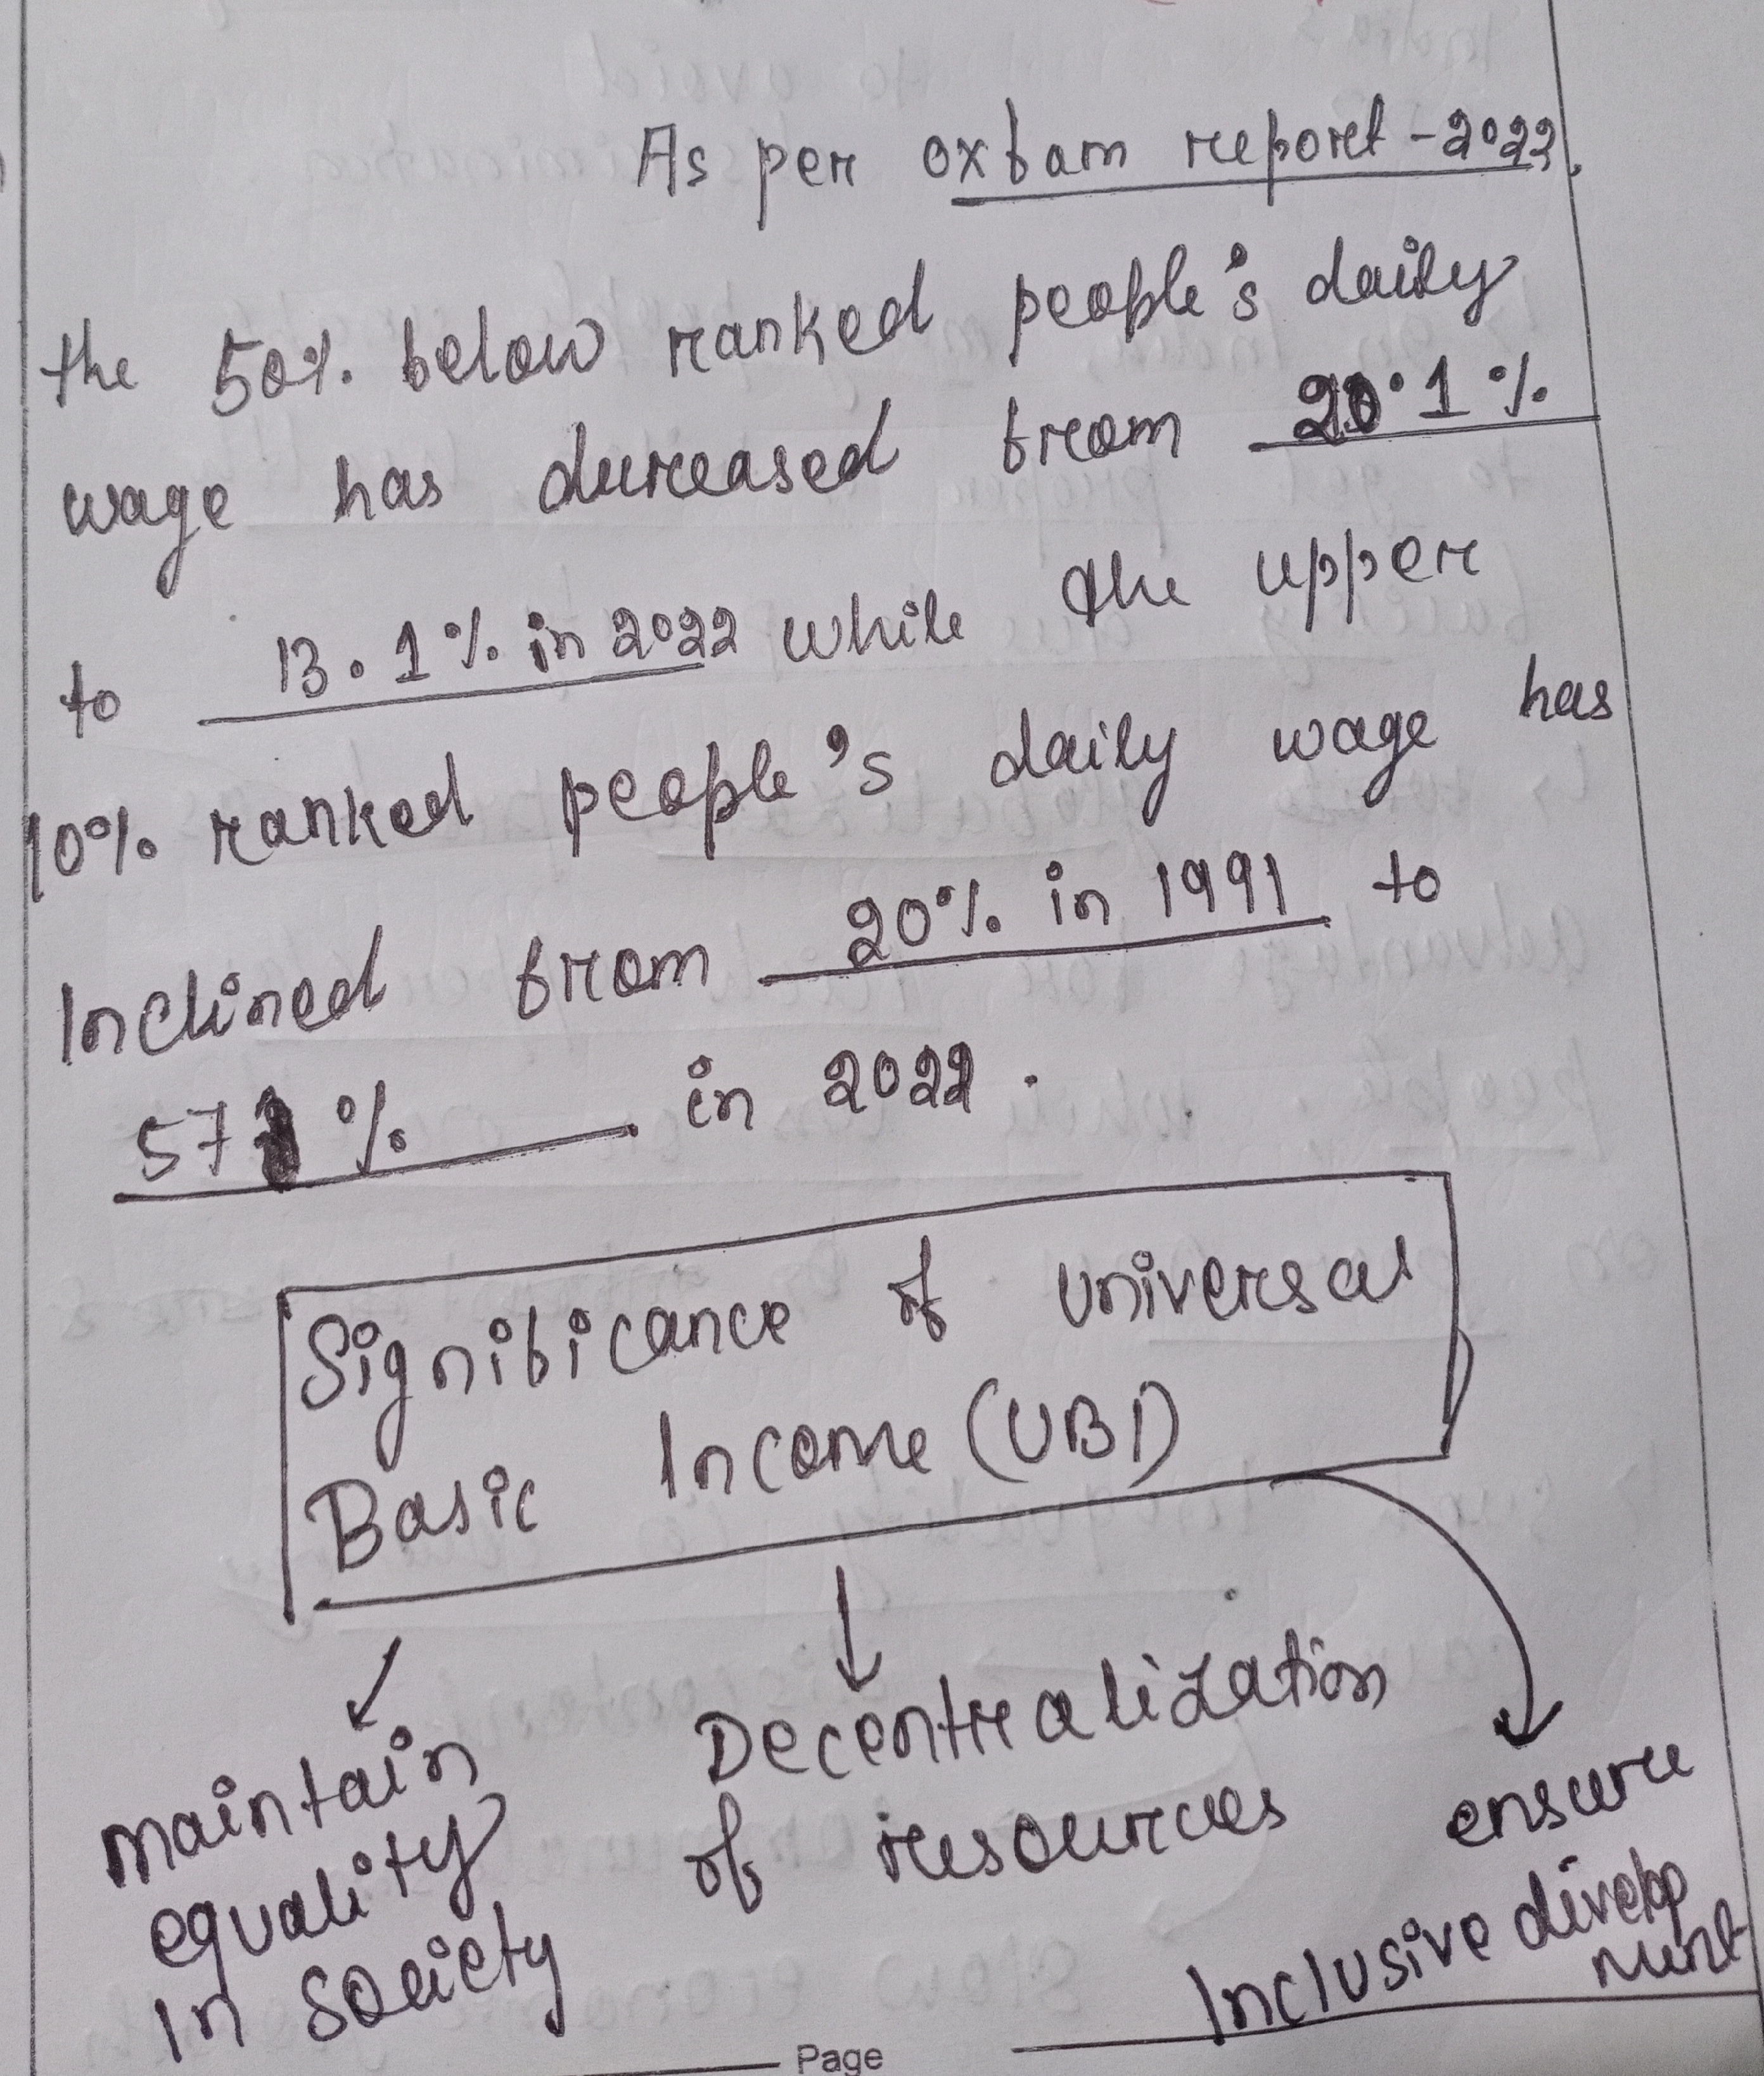 As per oxfam report - 2022,
the 50% below ranked people's daily
wage has decreased from 20.1%
to 13.1% in 2022 while the upper
10% ranked people's daily wage has
Inclined from 20% in 1991 to
57% in 2022.
Significance of Universal
Basic Income (UBI)
maintain
equality
In society
Decentralization
of resources
ensure
Inclusive divelop
ment
Page